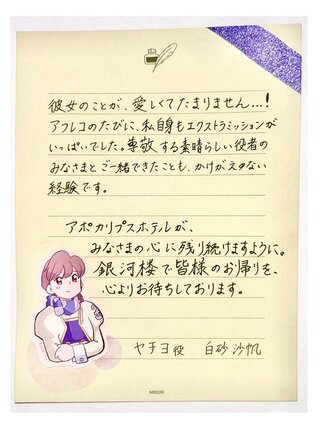 彼女のことが、愛しくてたまりません…!
アフレコのたびに、私自身もエクストラミッションが
いっぱいでした。尊敬する素晴らしい役者の
みなさまとご一緒できたことも、かけがえのない
経験です。
アポカリプスホテルが、
みなさまの心に残り続けますように。
銀河楼で皆様のお帰りを、
心よりお待ちしております。
ヤチヨ役 白砂沙帆
MIDORI